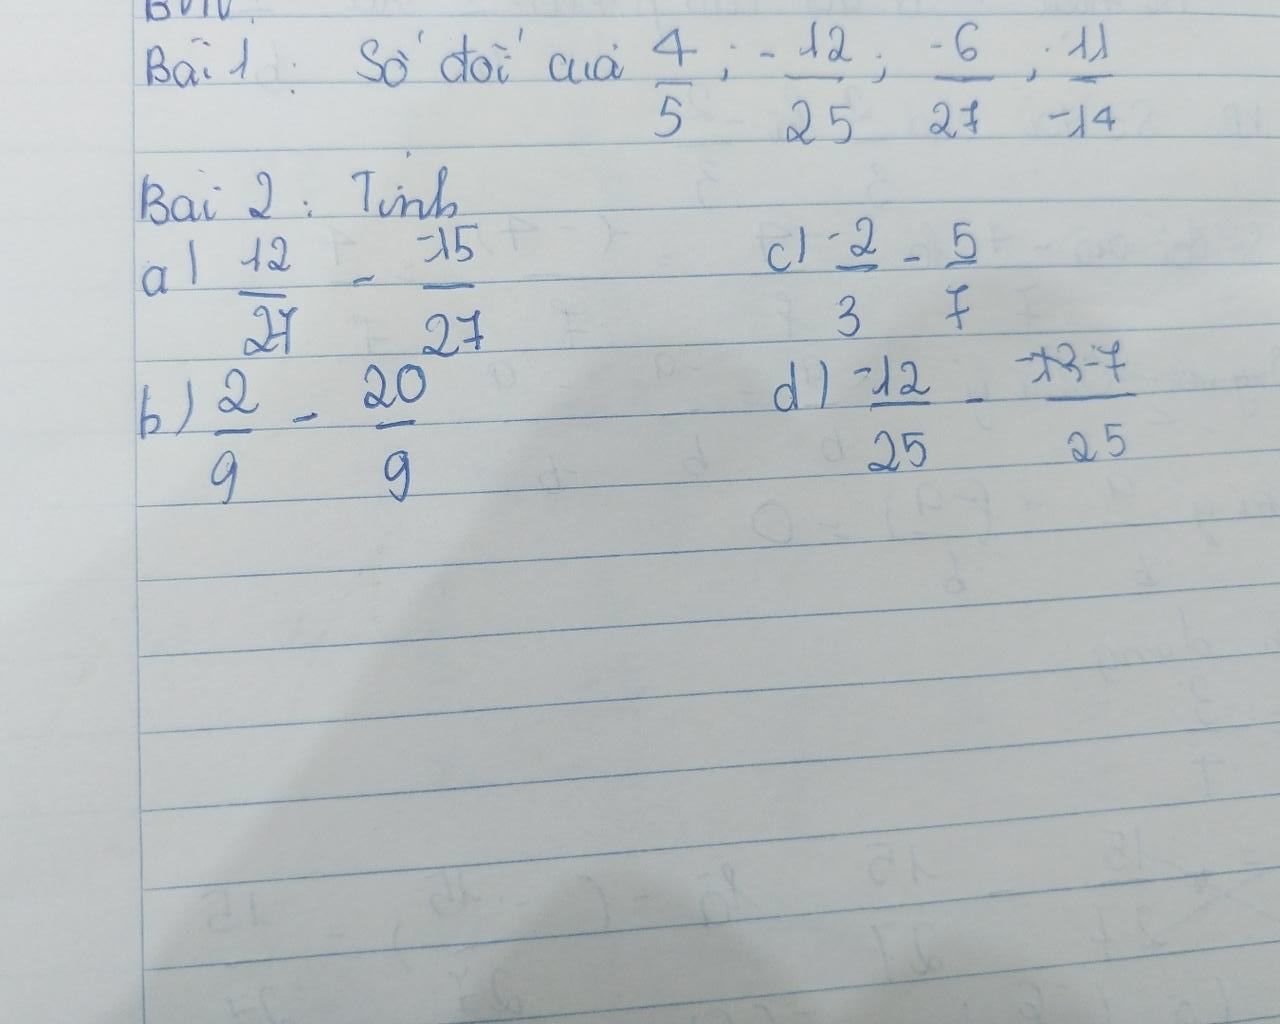 BVN.
Bài 1: Số đối của 4/5; -12/25; -6/27; 11/-14
Bài 2: Tính
a) 12/27 - -15/27
c) -2/3 - 5/7
b) 2/9 - 20/9
d) -12/25 - -7/25